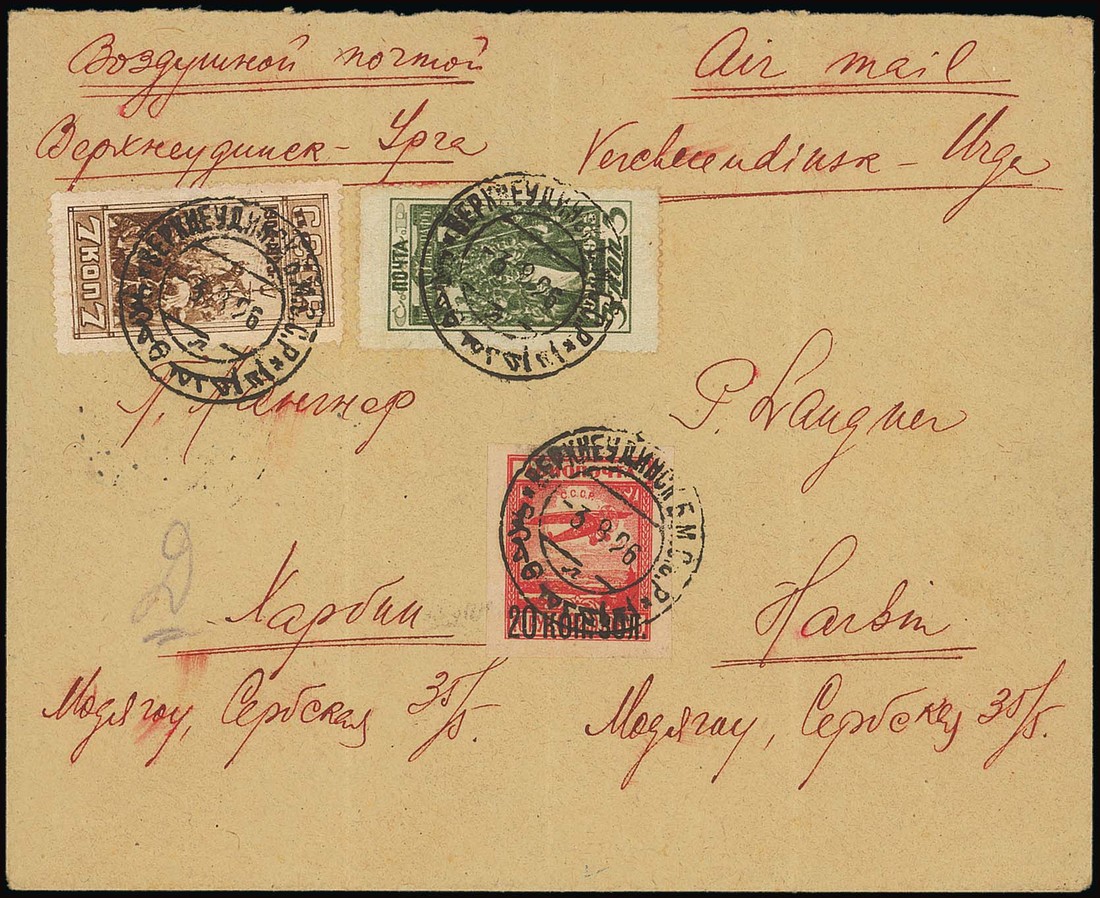 Воздушной почтой Air mail
Верхнеудинск - Урга Verchneudinsk - Urga
7 КОП 7
С.С.С.Р.
ПОЧТА
ВЕРХНЕУДИНСК Б.М.Р.С.С.Р
ВЕРХНЕУДИНСК
Л. Лангнер P. Langner
С.С.С.Р.
ВЕРХНЕУДИНСК Б.М.Р.С.С.Р
-3 8 26
20 КОП. ЗОЛ.
Харбин Harbin
Модягоу, Сербская 35/5. Модягоу, Сербская 35/5.